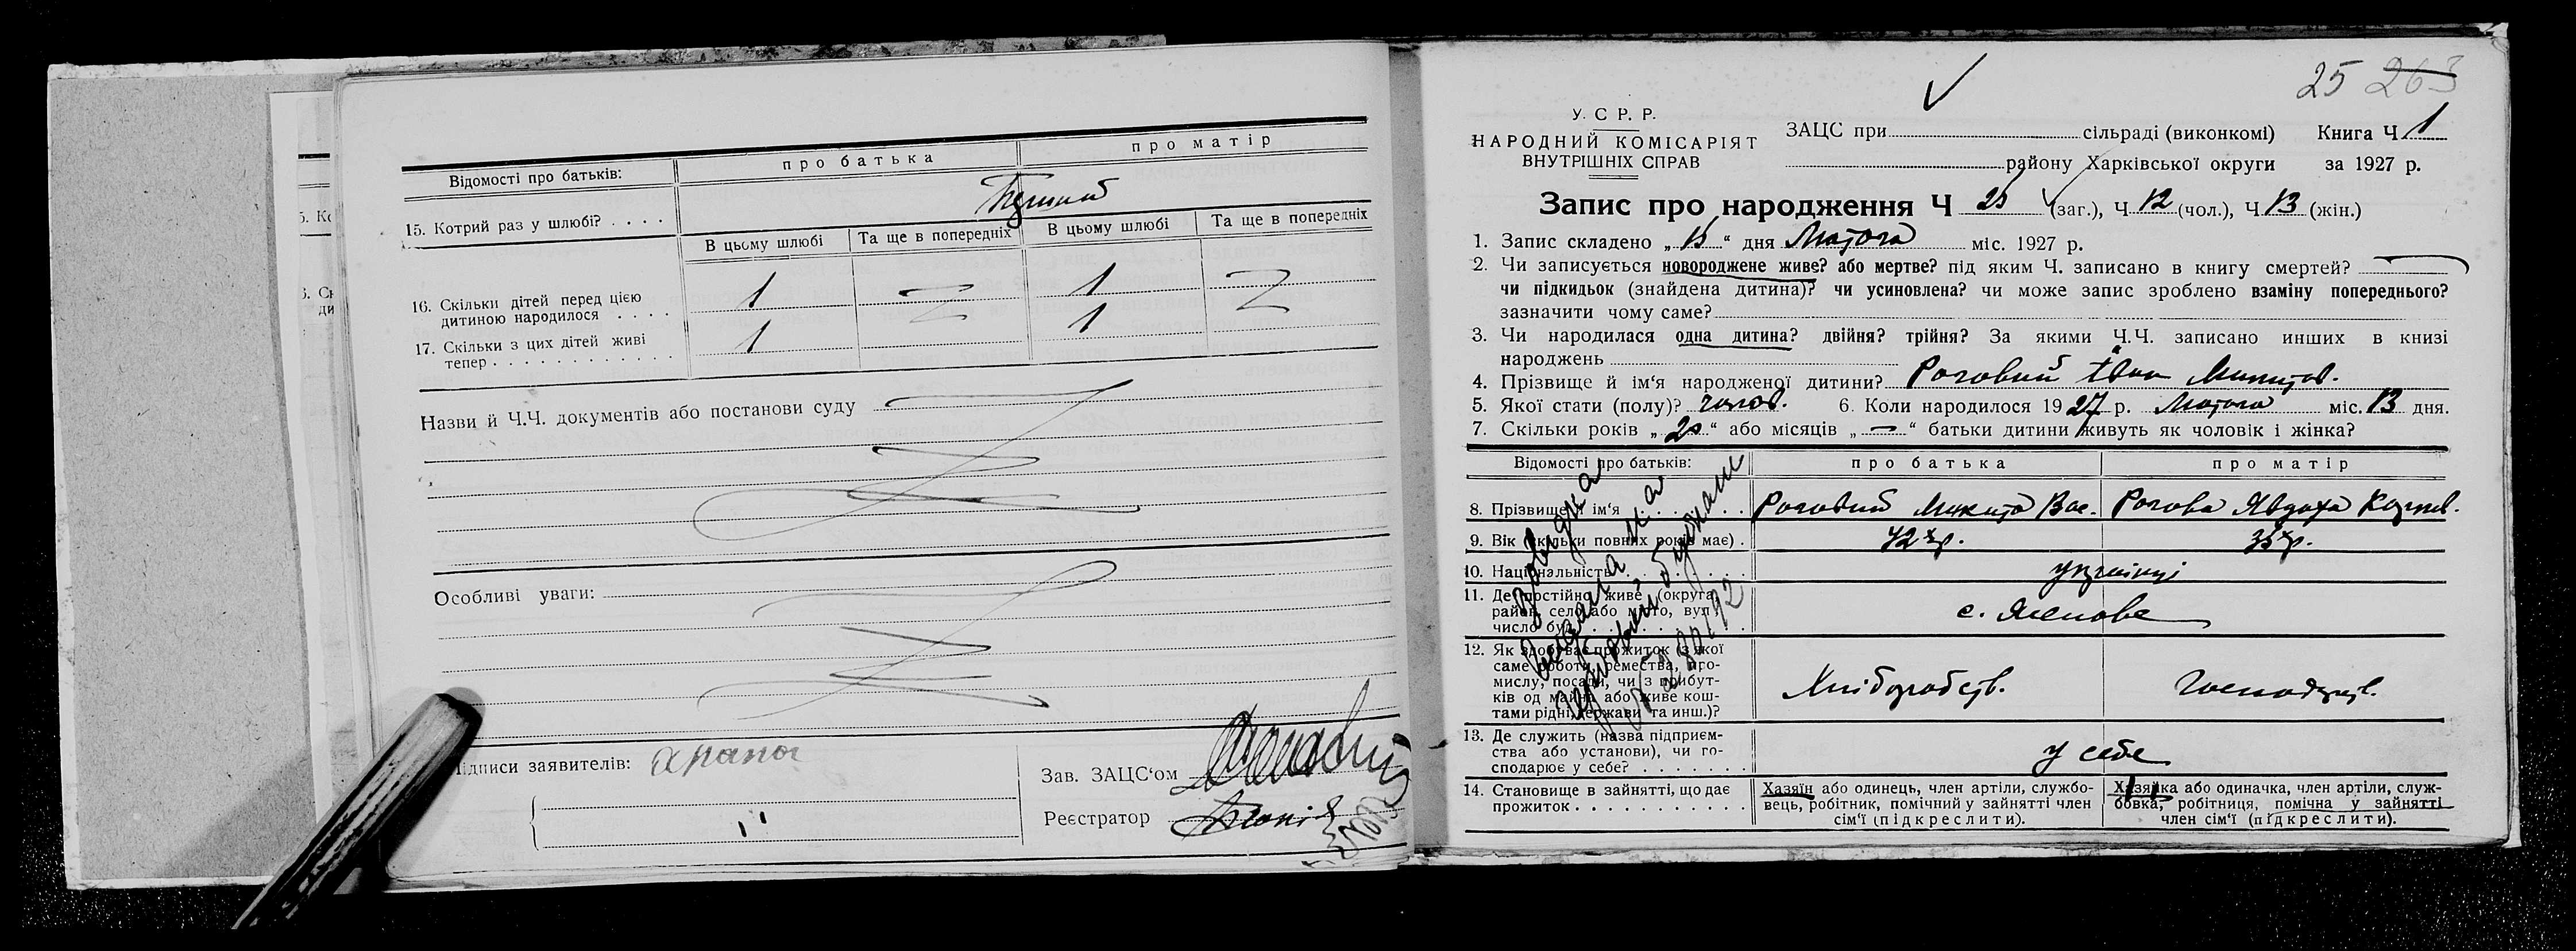 Відомості про батьків:
про батька
про матір
15. Котрий раз у шлюбі? . . . .
Перший
В цьому шлюбі
Та ще в попередніх
В цьому шлюбі
Та ще в попередніх
16. Скільки дітей перед цією
дитиною народилося . . . .
1
1
17. Скільки з цих дітей живі
тепер . . . . . . . . . . . .
1
1
Назви й Ч.Ч. документів або постанови суду
Особливі уваги:
ідписи заявителів:
Зав. ЗАЦС'ом
Реєстратор
25 263
У. С. Р. Р.
НАРОДНИЙ КОМІСАРІЯТ
ВНУТРІШНІХ СПРАВ
ЗАЦС при сільраді (виконкомі) Книга Ч 1
району Харківської округи за 1927 р.
Запис про народження Ч 25 (заг.), Ч 12 (чол.), Ч 13 (жін.)
1. Запис складено „15“ дня Лютого міс. 1927 р.
2. Чи записується новороджене живе? або мертве? під яким Ч. записано в книгу смертей? —
чи підкидьок (знайдена дитина)? чи усиновлена? чи може запис зроблено взаміну попереднього?
зазначити чому саме?
3. Чи народилася одна дитина? двійня? трійня? За якими Ч.Ч. записано инших в книзі
народжень
4. Прізвище й ім'я народженої дитини? Роговий Іван Микитов.
5. Якої стати (полу)? чолов. 6. Коли народилося 1927 р. Лютого міс. 13 дня.
7. Скільки років „20“ або місяців „—“ батьки дитини живуть як чоловік і жінка?
Відомості про батьків:
про батька
про матір
8. Прізвище й ім'я . . . . . . . .
Роговий Микита Вас.
Рогова Явдоха
9. Вік (скільки повних років має) .
42 р.
35 р.
10. Національність . . . . . . . .
українці
11. Де постійно живе (округа,
район, село або місто, вул.,
число буд.) . . . . . . . . . .
с. Ясенове
12. Як здобуває прожиток (з якої
саме роботи, ремества, про-
мислу, посади, чи з прибут-
ків од майна або живе кош-
тами рідні, держави та инш.)?
Хліборобств.
Господарст.
13. Де служить (назва підприєм-
ства або установи), чи го-
сподарює у себе? . . . . . . .
у себе
14. Становище в зайнятті, що дає
прожиток . . . . . . . . . . .
Хазяїн або одинець, член артіли, службо-
вець, робітник, помічний у зайнятті член
сім'ї (підкреслити).
Хазяйка або одиначка, член артіли, служ-
бовка, робітниця, помічна у зайнятті
член сім'ї (підкреслити).